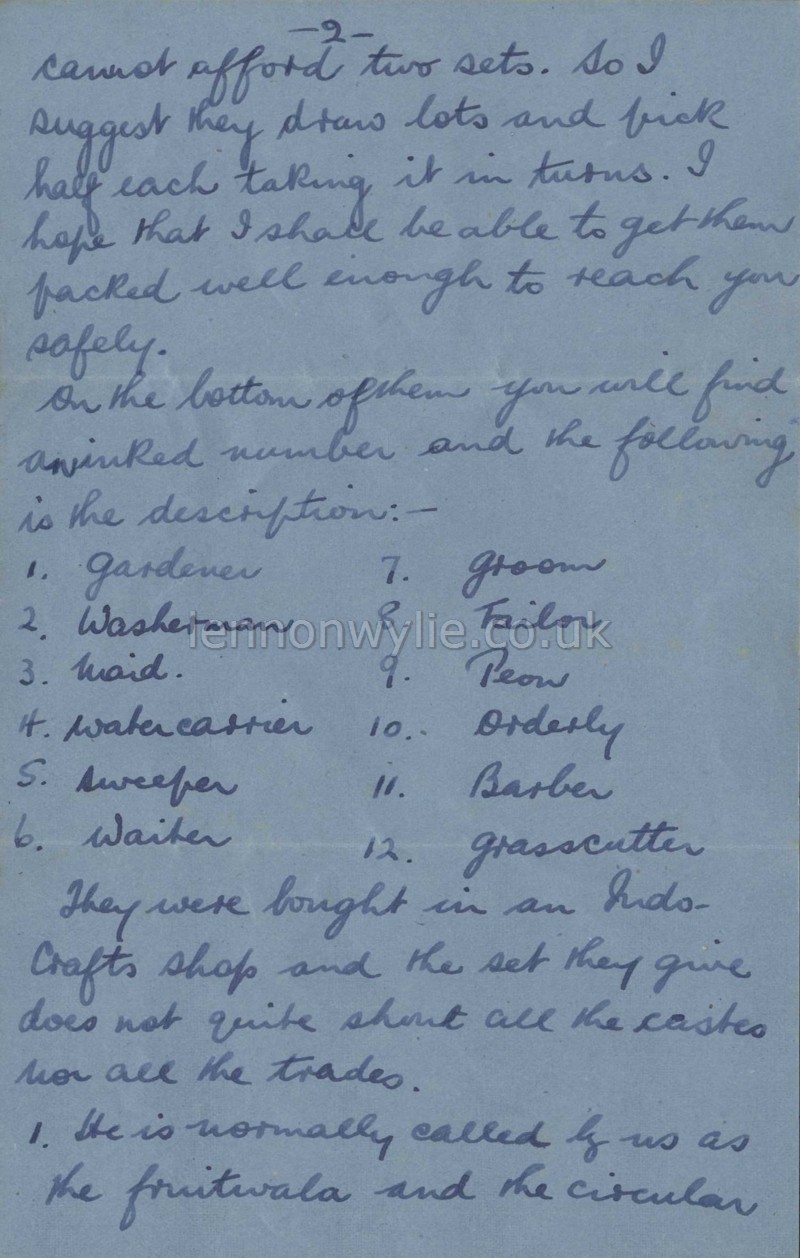 -2-
cannot afford two sets. So I
suggest they draw lots and pick
half each taking it in turns. I
hope that I shall be able to get them
packed well enough to reach you
safely.
On the bottom of them you will find
an inked number and the following
is the description:-
1. Gardener 7. Groom
2. Washerman 8 Tailor
3. Maid. 9. Peon
4. Watercarrier 10.. Orderly
5. Sweeper 11. Barber
6. Waiter 12. Grasscutter
They were bought in an Indo-
Crafts shop and the set they give
does not quite show all the castes
nor all the trades.
1. He is normally called by us as
the fruitwala and the circular
lennonwylie.co.uk